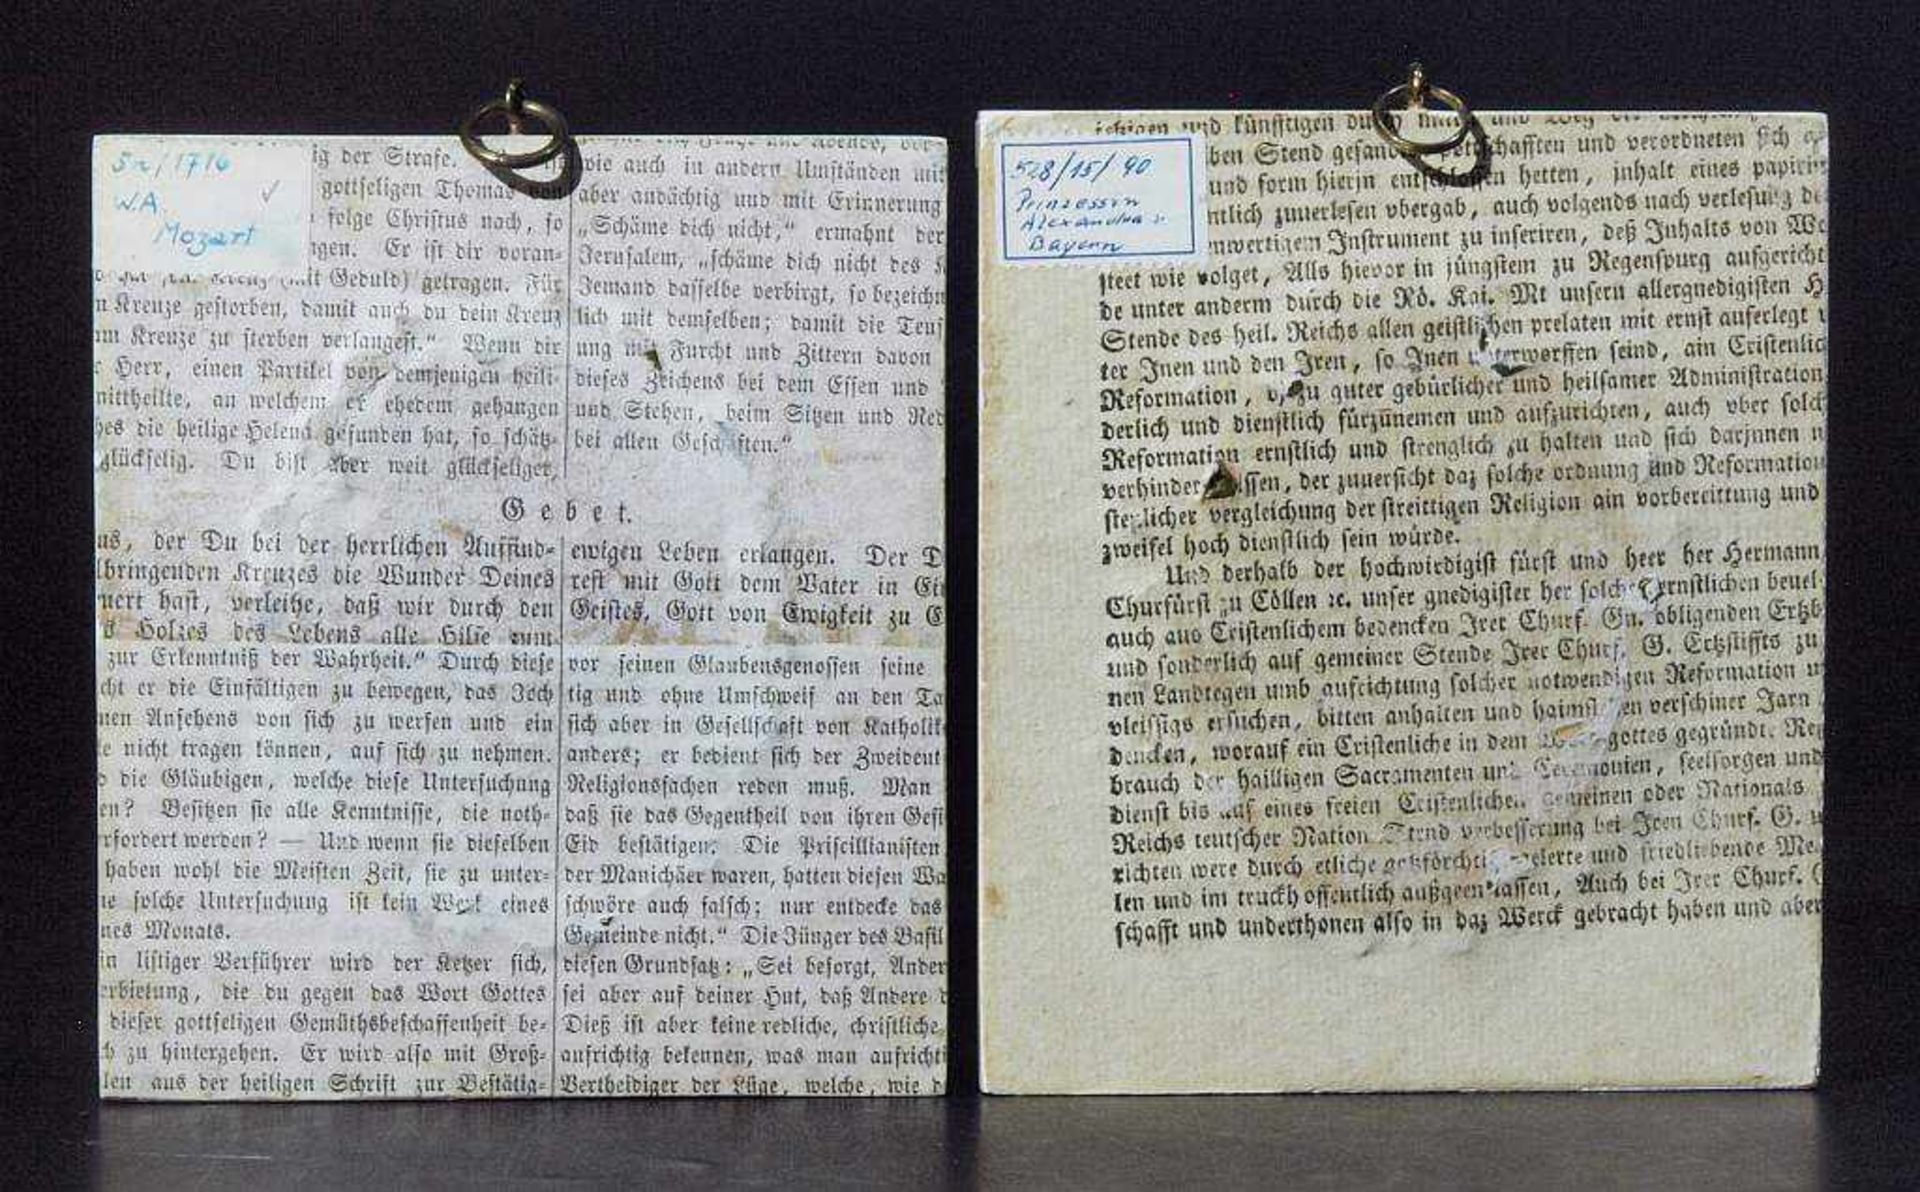 5r/1716
W.A.
Mozart
ig der Strafe.
gottseligen Thomas von
folge Christus nach, so
gen. Er ist dir voran-
mit Geduld) getragen. Für
n Kreuze gestorben, damit auch du dein Kreuz
am Kreuze zu sterben verlangest.“ Wenn dir
r Herr, einen Partikel von demjenigen heili-
mittheilte, an welchem er ehedem gehangen
hes die heilige Helena gefunden hat, so schätz-
glückselig. Du bist aber weit glückseliger,
wie auch in andern Umständen mit
aber andächtig und mit Erinnerung
„Schäme dich nicht,“ ermahnt der
Jerusalem, „schäme dich nicht des K
Jemand dasselbe verbirgt, so bezeichn
lich mit demselben; damit die Teuf
ung mit Furcht und Zittern davon
dieses Zeichens bei dem Essen und
und Stehen, beim Sitzen und Red
bei allen Geschäften.“
Gebet.
us, der Du bei der herrlichen Auffind-
lbringenden Kreuzes die Wunder Deines
uert hast, verleihe, daß wir durch den
s Holzes des Lebens alle Hilfe zum
ewigen Leben erlangen. Der D
rest mit Gott dem Vater in Ein
Geistes, Gott von Ewigkeit zu E
zur Erkenntniß der Wahrheit.“ Durch diese
cht er die Einfältigen zu bewegen, das Joch
nen Ansehens von sich zu werfen und ein
e nicht tragen können, auf sich zu nehmen.
die Gläubigen, welche diese Untersuchung
en? Besitzen sie alle Kenntnisse, die noth-
rfordert werden? — Und wenn sie dieselben
haben wohl die Meisten Zeit, sie zu unter-
ne solche Untersuchung ist kein Werk eines
nes Monats.
in listiger Verführer wird der Ketzer sich,
erbietung, die du gegen das Wort Gottes
dieser gottseligen Gemüthsbeschaffenheit be-
h zu hintergehen. Er wird also mit Groß-
len aus der heiligen Schrift zur Bestätig-
vor seinen Glaubensgenossen seine
tig und ohne Umschweif an den Ta
sich aber in Gesellschaft von Katholik
anders; er bedient sich der Zweideut
Religionssachen reden muß. Man
daß sie das Gegentheil von ihren Gesi
Eid bestätigen. Die Priscillianisten
der Manichäer waren, hatten diesen Wa
schwöre auch falsch; nur entdecke das
Gemeinde nicht.“ Die Jünger des Basil
diesen Grundsatz: „Sei besorgt, Ander
sei aber auf deiner Hut, daß Andere d
Dieß ist aber keine redliche, christliche
aufrichtig bekennen, was man aufricht
Vertheidiger der Lüge, welche, wie d
528/15/90
Prinzessin
Alexandra v.
Bayern
und künfftigen durch
ben Stend gesandten petschafften und verordneten sich
und form hierjn entschlossen hetten, jnhalt eines papirin
ntlich zuuerlesen vbergab, auch volgends nach verlesung de
enwertigem Jnstrument zu inseriren, deß Jnhalts von We
steet wie volget, Alls hieuor in jüngstem zu Regenspurg aufgericht
de unter anderm durch die Rö. Kai. Mt unsern allergnedigisten H
Stende des heil. Reichs allen geistlichen prelaten mit ernst auferlegt
ter Jnen und den Jren, so Jnen unterworffen seind, ain Cristenlic
Reformation, zu guter gebürlicher und heilsamer Administration
derlich und dienstlich fürzünemen und aufzurichten, auch vber solch
Reformation ernstlich und strenglich zu halten und sich darjnnen
verhindern lassen, der zuuersicht daz solche ordnung und Reformation
stenlicher vergleichung der streittigen Religion ain vorbereittung und
zweifel hoch dienstlich sein würde.
Und derhalb der hochwirdigist fürst und heer her Hermann
Churfürst zu Cöllen ꝛc. unser gnedigister her solchen ernstlichen beuel
auch aus Cristenlichem bedencken Jrer Churf. Gn. obligenden Ertzb
und sonderlich auf gemeiner Stende Jrer Churf. G. Ertzstiffts zu
nen Landtegen umb aufrichtung solcher notwendigen Reformation
vleissigs ersuchen, bitten anhalten und haimstellen verschiner Jarn
dencken, worauf ein Cristenliche in dem Wort gottes gegründt. Re
brauch der hailligen Sacramenten und Ceremonien, seelsorgen und
dienst bis auf eines freien Cristenlichen gemeinen oder Nationals
Reichs teutscher Nation Stend verbesserung bei Jren Churf. G.
richten were durch etliche gotsförchtige gelerte und friedliebende Me
len und im truckh offentlich außgeen lassen, Auch bei Jrer Churf.
schafft und underthonen also in daz Werck gebracht haben und aber